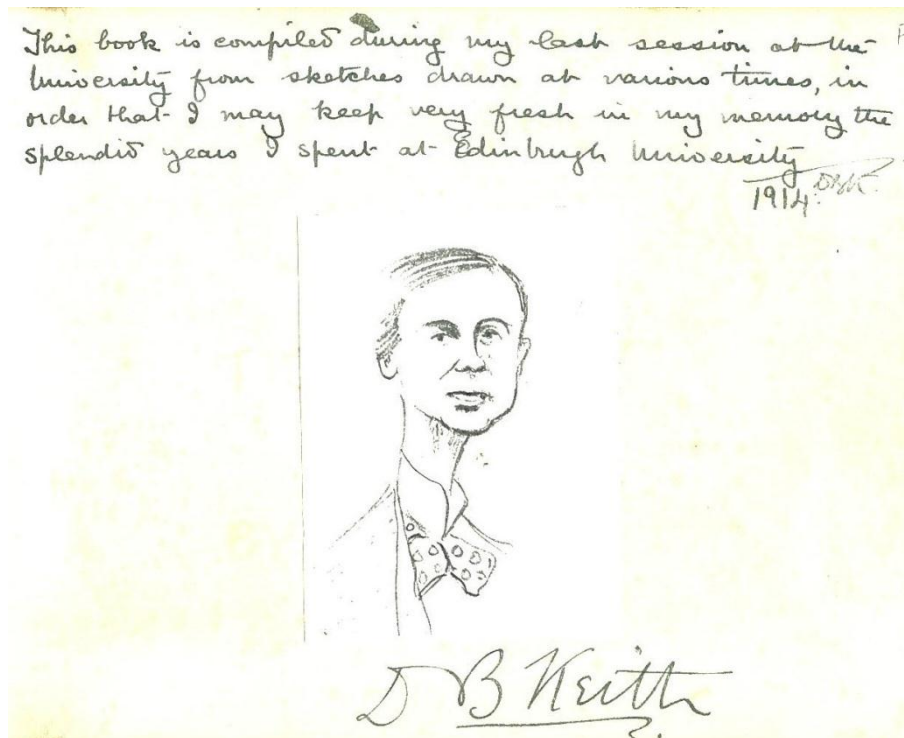 This book is compiled during my last session at the
University from sketches drawn at various times, in
order that I may keep very fresh in my memory the
splendid years I spent at Edinburgh University
1914. DBK.
D B Keith